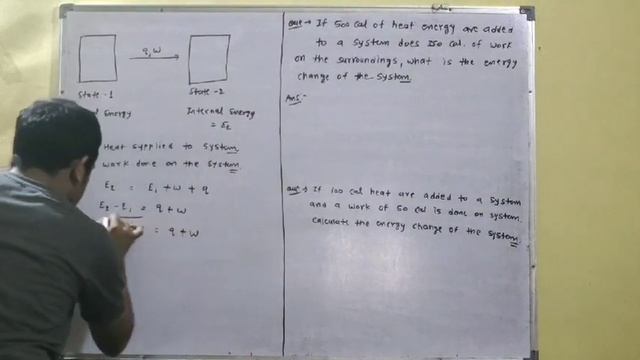 q, w
State -1
State -2
Energy
Internal Energy
= E2
Heat supplied to System
work done on the System
E2 = E1 + w + q
E2 - E1 = q + w
= q + w
Que → If 500 cal of heat energy are added
to a system does 150 cal. of work
on the surroundings, what is the energy
change of the system
Ans:-
Que → If 100 cal heat are added to a system
and a work of 50 cal is done on system.
Calculate the energy change of the system